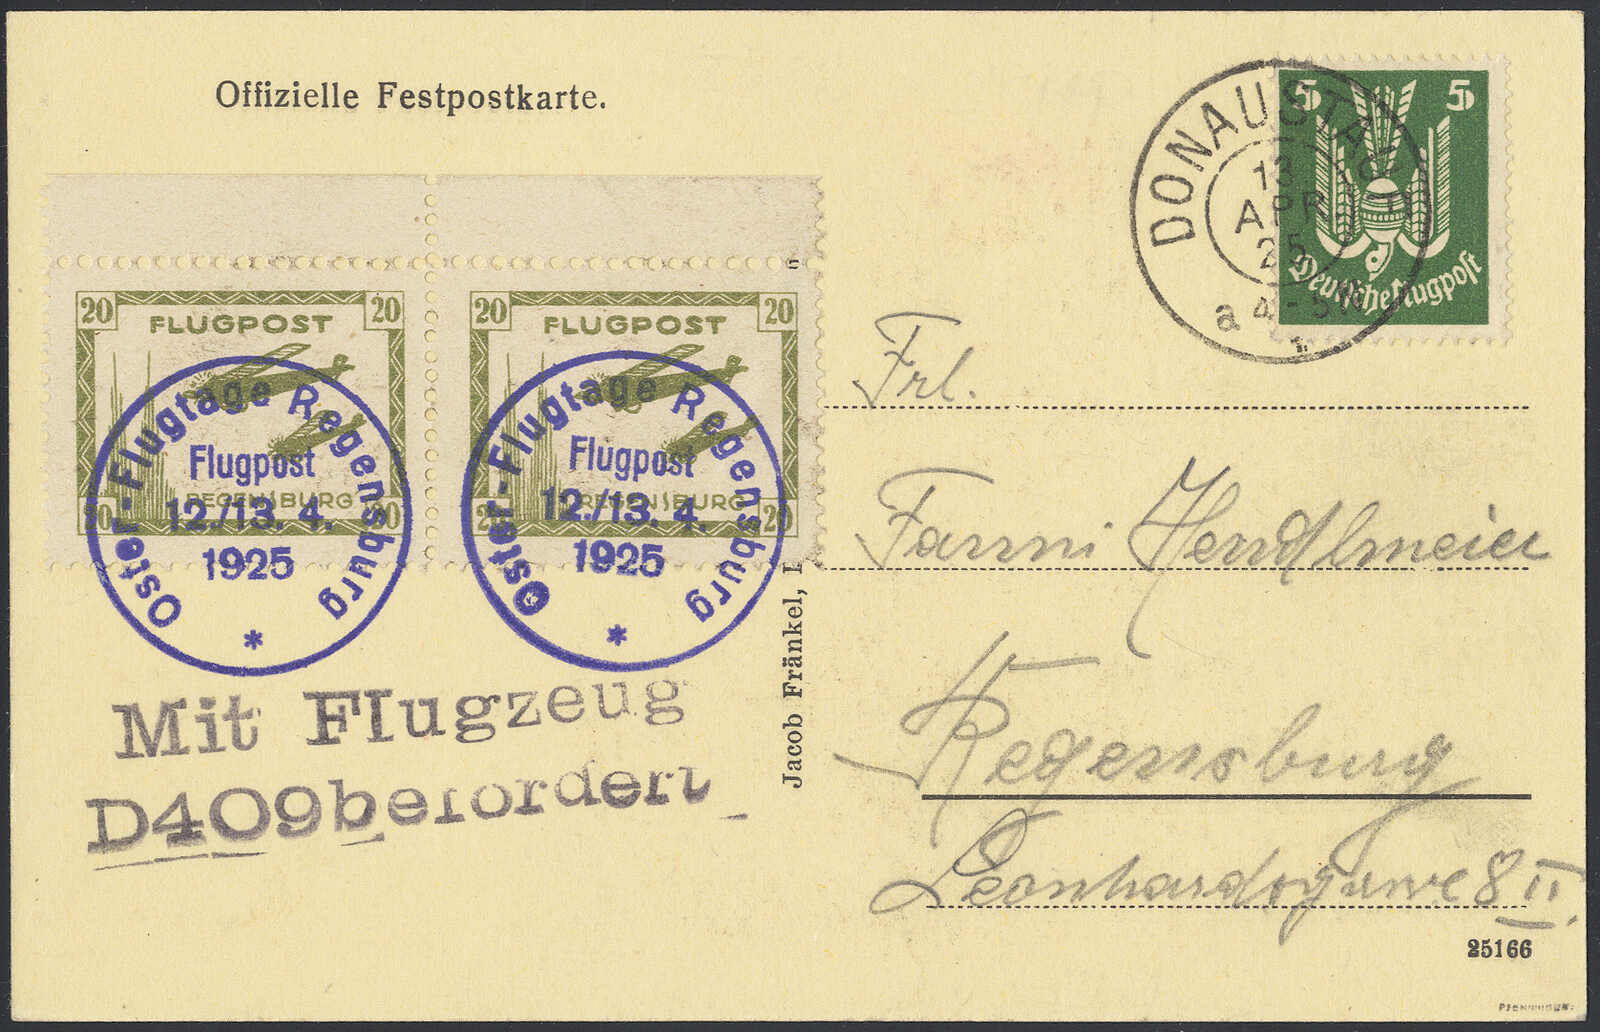 Offizielle Festpostkarte.
5 5
Deutsche Flugpost
DONAUSTAUF
13
APR
25
a 4-5 N
20 20
FLUGPOST
REGENSBURG
20 20
20 20
FLUGPOST
REGENSBURG
20 20
Oster-Flugtage Regensburg
Flugpost
12./13. 4.
1925
*
Oster-Flugtage Regensburg
Flugpost
12./13. 4.
1925
*
Mit Flugzeug
D409 befördert
Jacob Fränkel,
Frl.
Fanni Hendlmeier
Regensburg
Leonhardsgasse 8 II.
25166